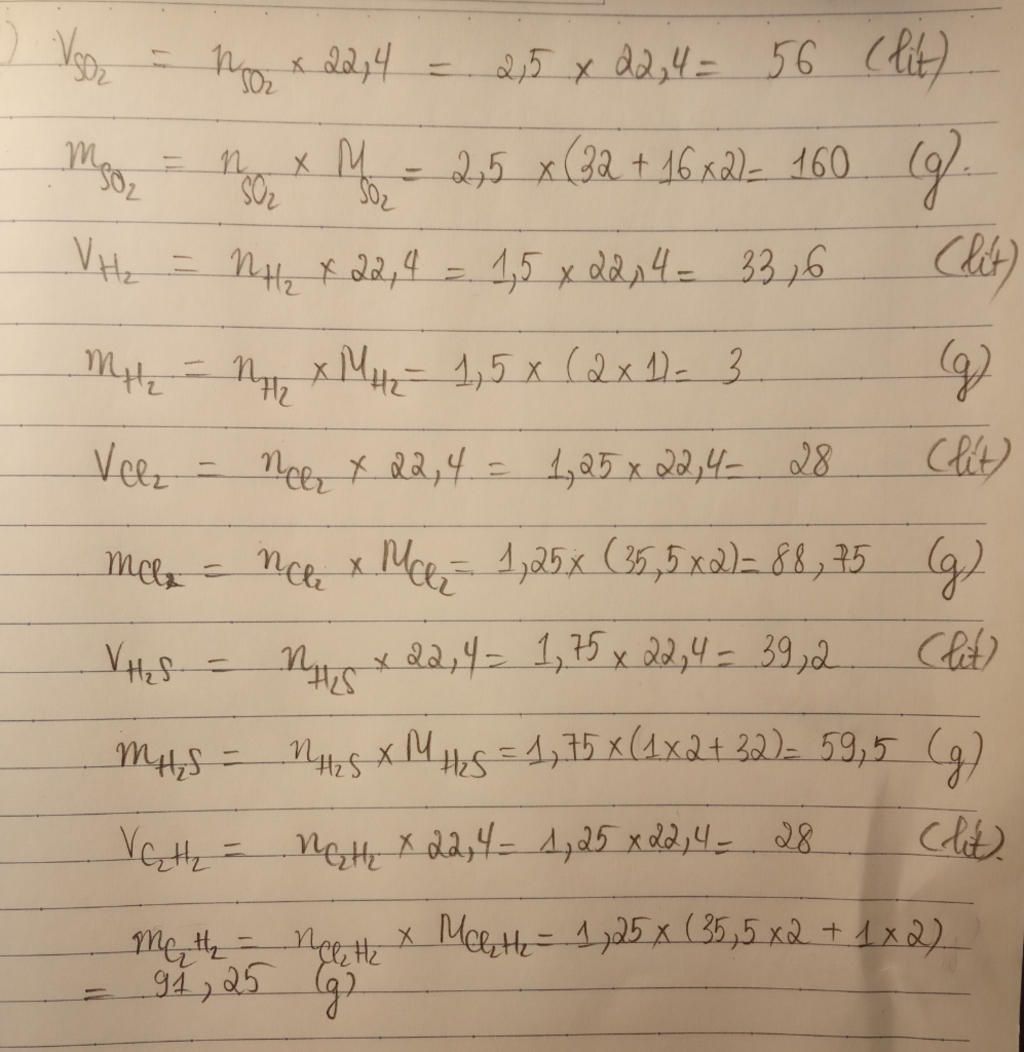 ) V_SO₂ = n_SO₂ × 22,4 = 2,5 × 22,4 = 56 (lit)
m_SO₂ = n_SO₂ × M_SO₂ = 2,5 × (32 + 16 × 2) = 160 (g).
V_H₂ = n_H₂ × 22,4 = 1,5 × 22,4 = 33,6 (lit)
m_H₂ = n_H₂ × M_H₂ = 1,5 × (2 × 1) = 3 (g)
V_Cl₂ = n_Cl₂ × 22,4 = 1,25 × 22,4 = 28 (lit)
m_Cl₂ = n_Cl₂ × M_Cl₂ = 1,25 × (35,5 × 2) = 88,75 (g)
V_H₂S = n_H₂S × 22,4 = 1,75 × 22,4 = 39,2 (lit)
m_H₂S = n_H₂S × M_H₂S = 1,75 × (1 × 2 + 32) = 59,5 (g)
V_C₂H₂ = n_C₂H₂ × 22,4 = 1,25 × 22,4 = 28 (lit).
m_C₂H₂ = n_Cl₂H₂ × M_Cl₂H₂ = 1,25 × (35,5 × 2 + 1 × 2)
= 91,25 (g)